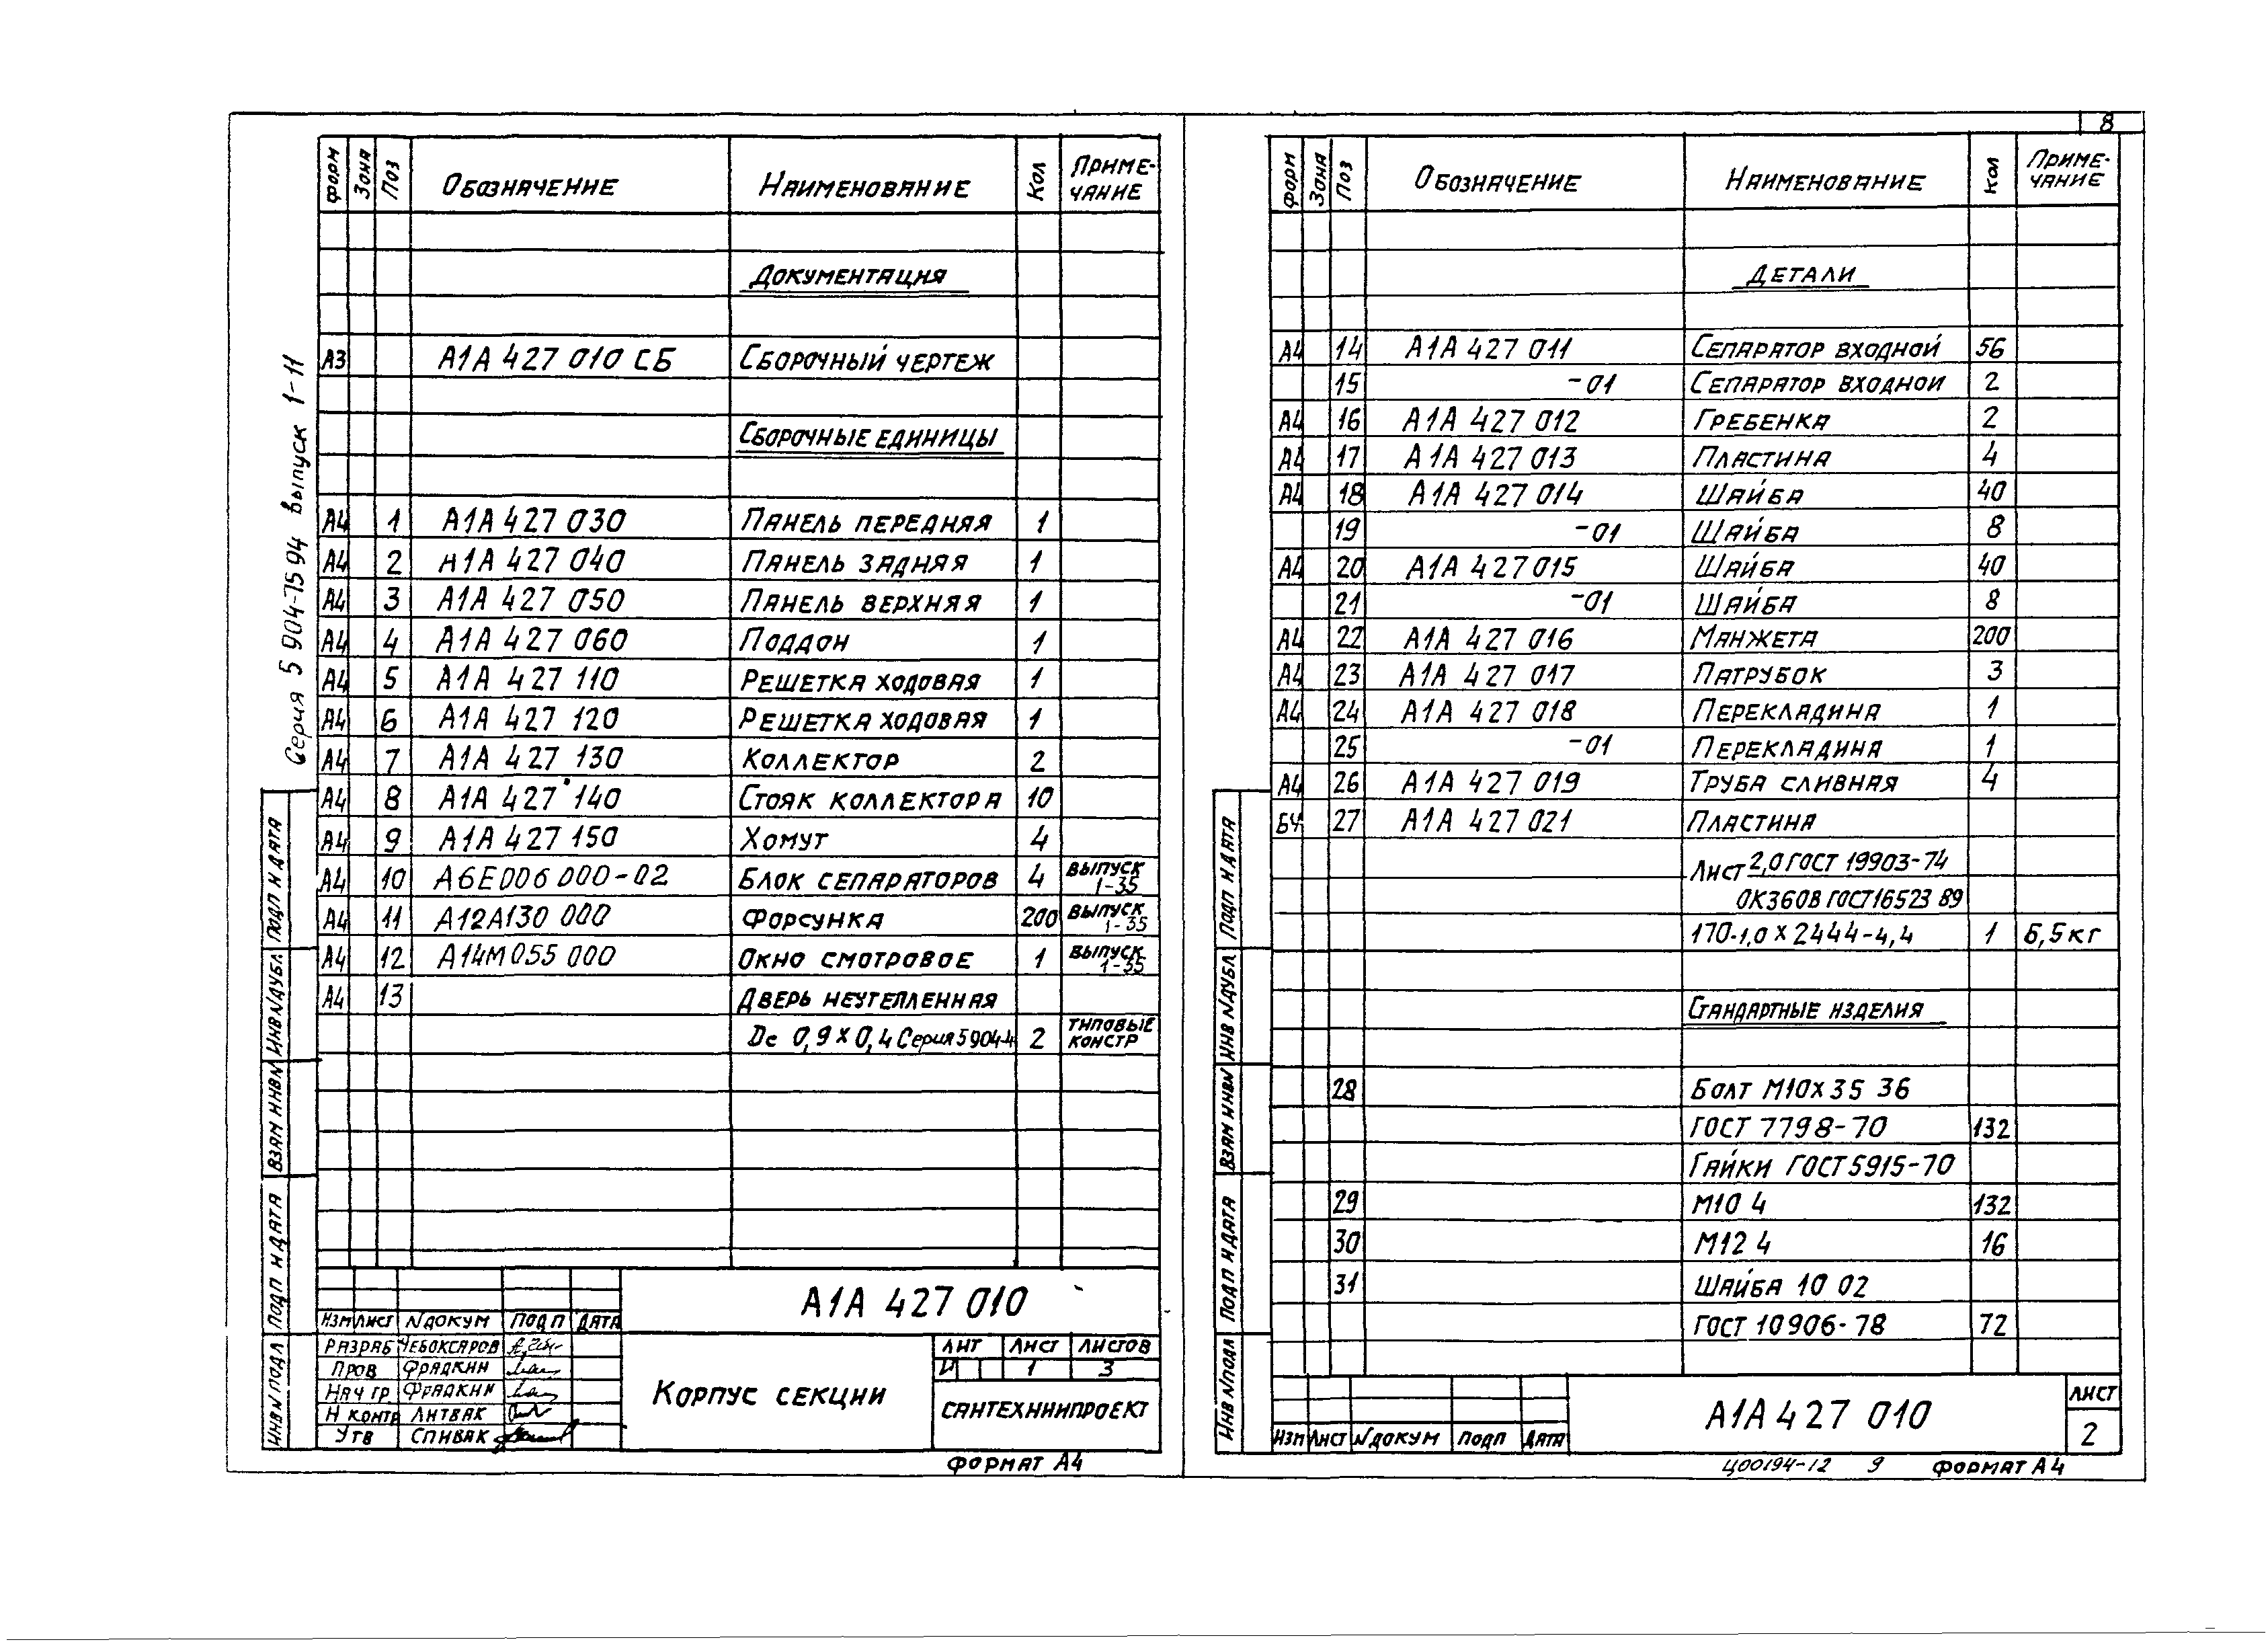 8
Серия 5 904-75 94 выпуск 1-11
Форм Зона Поз Обозначение Наименование Кол Приме-
чание
Документация
А3 А1А 427 010 СБ Сборочный чертеж
Сборочные единицы
А4 1 А1А 427 030 Панель передняя 1
А4 2 А1А 427 040 Панель задняя 1
А4 3 А1А 427 050 Панель верхняя 1
А4 4 А1А 427 060 Поддон 1
А4 5 А1А 427 110 Решетка ходовая 1
А4 6 А1А 427 120 Решетка ходовая 1
А4 7 А1А 427 130 Коллектор 2
А4 8 А1А 427 140 Стояк коллектора 10
А4 9 А1А 427 150 Хомут 4
А4 10 А6Е006 000-02 Блок сепараторов 4 выпуск
1-35
А4 11 А12А130 000 Форсунка 200 выпуск
1-35
А4 12 А14М055 000 Окно смотровое 1 выпуск
1-35
А4 13 Дверь неутепленная
Dс 0,9×0,4 Серия 5 904-4 2 типовые
констр
Инв N подл Подп и дата Взам инв N Инв N дубл Подп и дата
А1А 427 010
Изм Лист N докум Подп Дата
Разраб Чебоксаров
Пров Фрадкин
Нач гр Фрадкин
Н контр Литвак
Утв Спивак
Корпус секции
Лит Лист Листов
И 1 3
Сантехниипроект
Формат А4
Форм Зона Поз Обозначение Наименование Кол Приме-
чание
Детали
А4 14 А1А 427 011 Сепаратор входной 56
15 -01 Сепаратор входной 2
А4 16 А1А 427 012 Гребенка 2
А4 17 А1А 427 013 Пластина 4
А4 18 А1А 427 014 Шайба 40
19 -01 Шайба 8
А4 20 А1А 427 015 Шайба 40
21 -01 Шайба 8
А4 22 А1А 427 016 Манжета 200
А4 23 А1А 427 017 Патрубок 3
А4 24 А1А 427 018 Перекладина 1
25 -01 Перекладина 1
А4 26 А1А 427 019 Труба сливная 4
БЧ 27 А1А 427 021 Пластина
Лист 2,0 ГОСТ 19903-74
ОК360В ГОСТ16523 89
170-1,0 × 2444-4,4 1 6,5кг
Стандартные изделия
28 Болт М10×35 36
ГОСТ 7798-70 132
Гайки ГОСТ 5915-70
29 М10 4 132
30 М12 4 16
31 Шайба 10 02
ГОСТ 10906-78 72
Инв N подл Подп и дата Взам инв N Инв N дубл Подп и дата
Изм Лист N докум Подп Дата
А1А 427 010
Лист
2
Ц00194-12 9 Формат А4